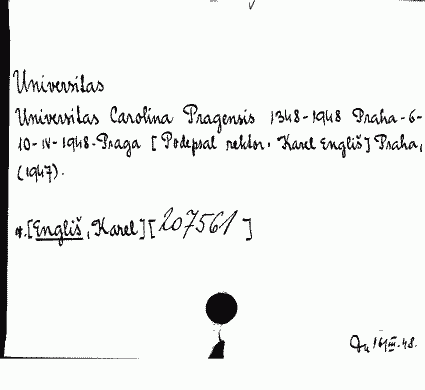 Universitas
Universitas Carolina Pragensis 1348-1948 Praha-6-
10-IV-1948-Praga [Podepsal rektor: Karel Engliš] Praha,
(1947).
*. [Engliš, Karel] [207561]
16/III.48.